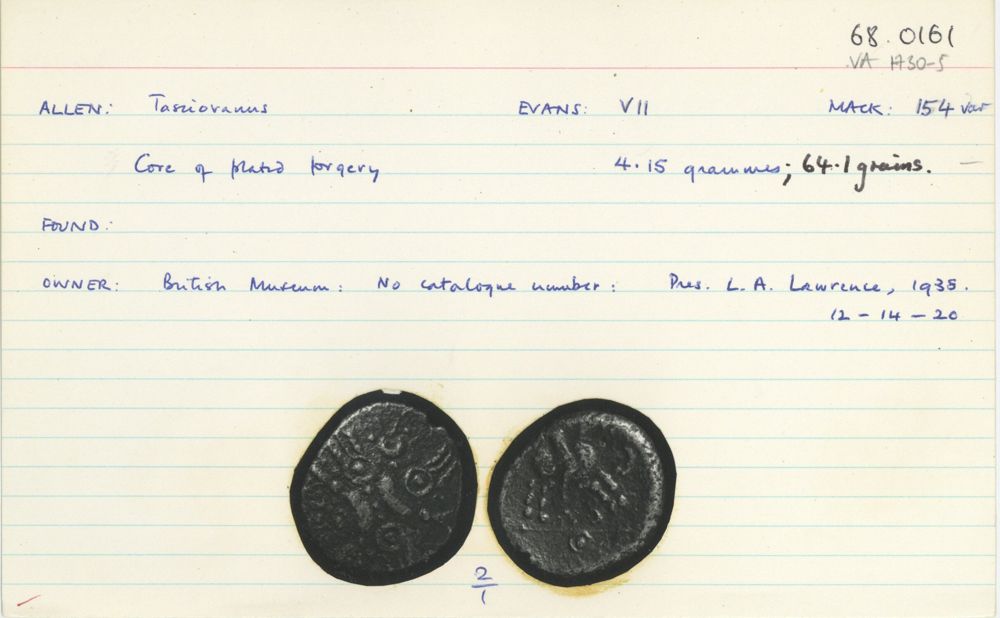 68.0161
VA 1730-5
ALLEN: Tasciovanus EVANS: VII MACK: 154 var
Core of plated forgery 4.15 grammes; 64.1 grains. —
FOUND:
OWNER: British Museum: No catalogue number: Pres. L. A. Lawrence, 1935.
12 - 14 - 20
2/1